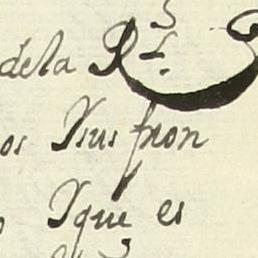 dela R^l.
os Ysus fron
Yque es